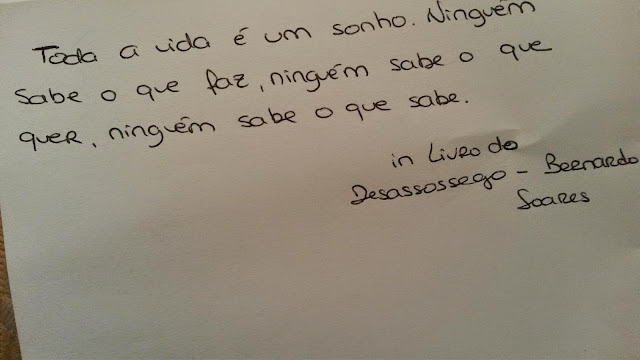 Toda a vida é um sonho. Ninguém
sabe o que faz, ninguém sabe o que
quer, ninguém sabe o que sabe.
in Livro do
Desassossego - Bernardo
Soares